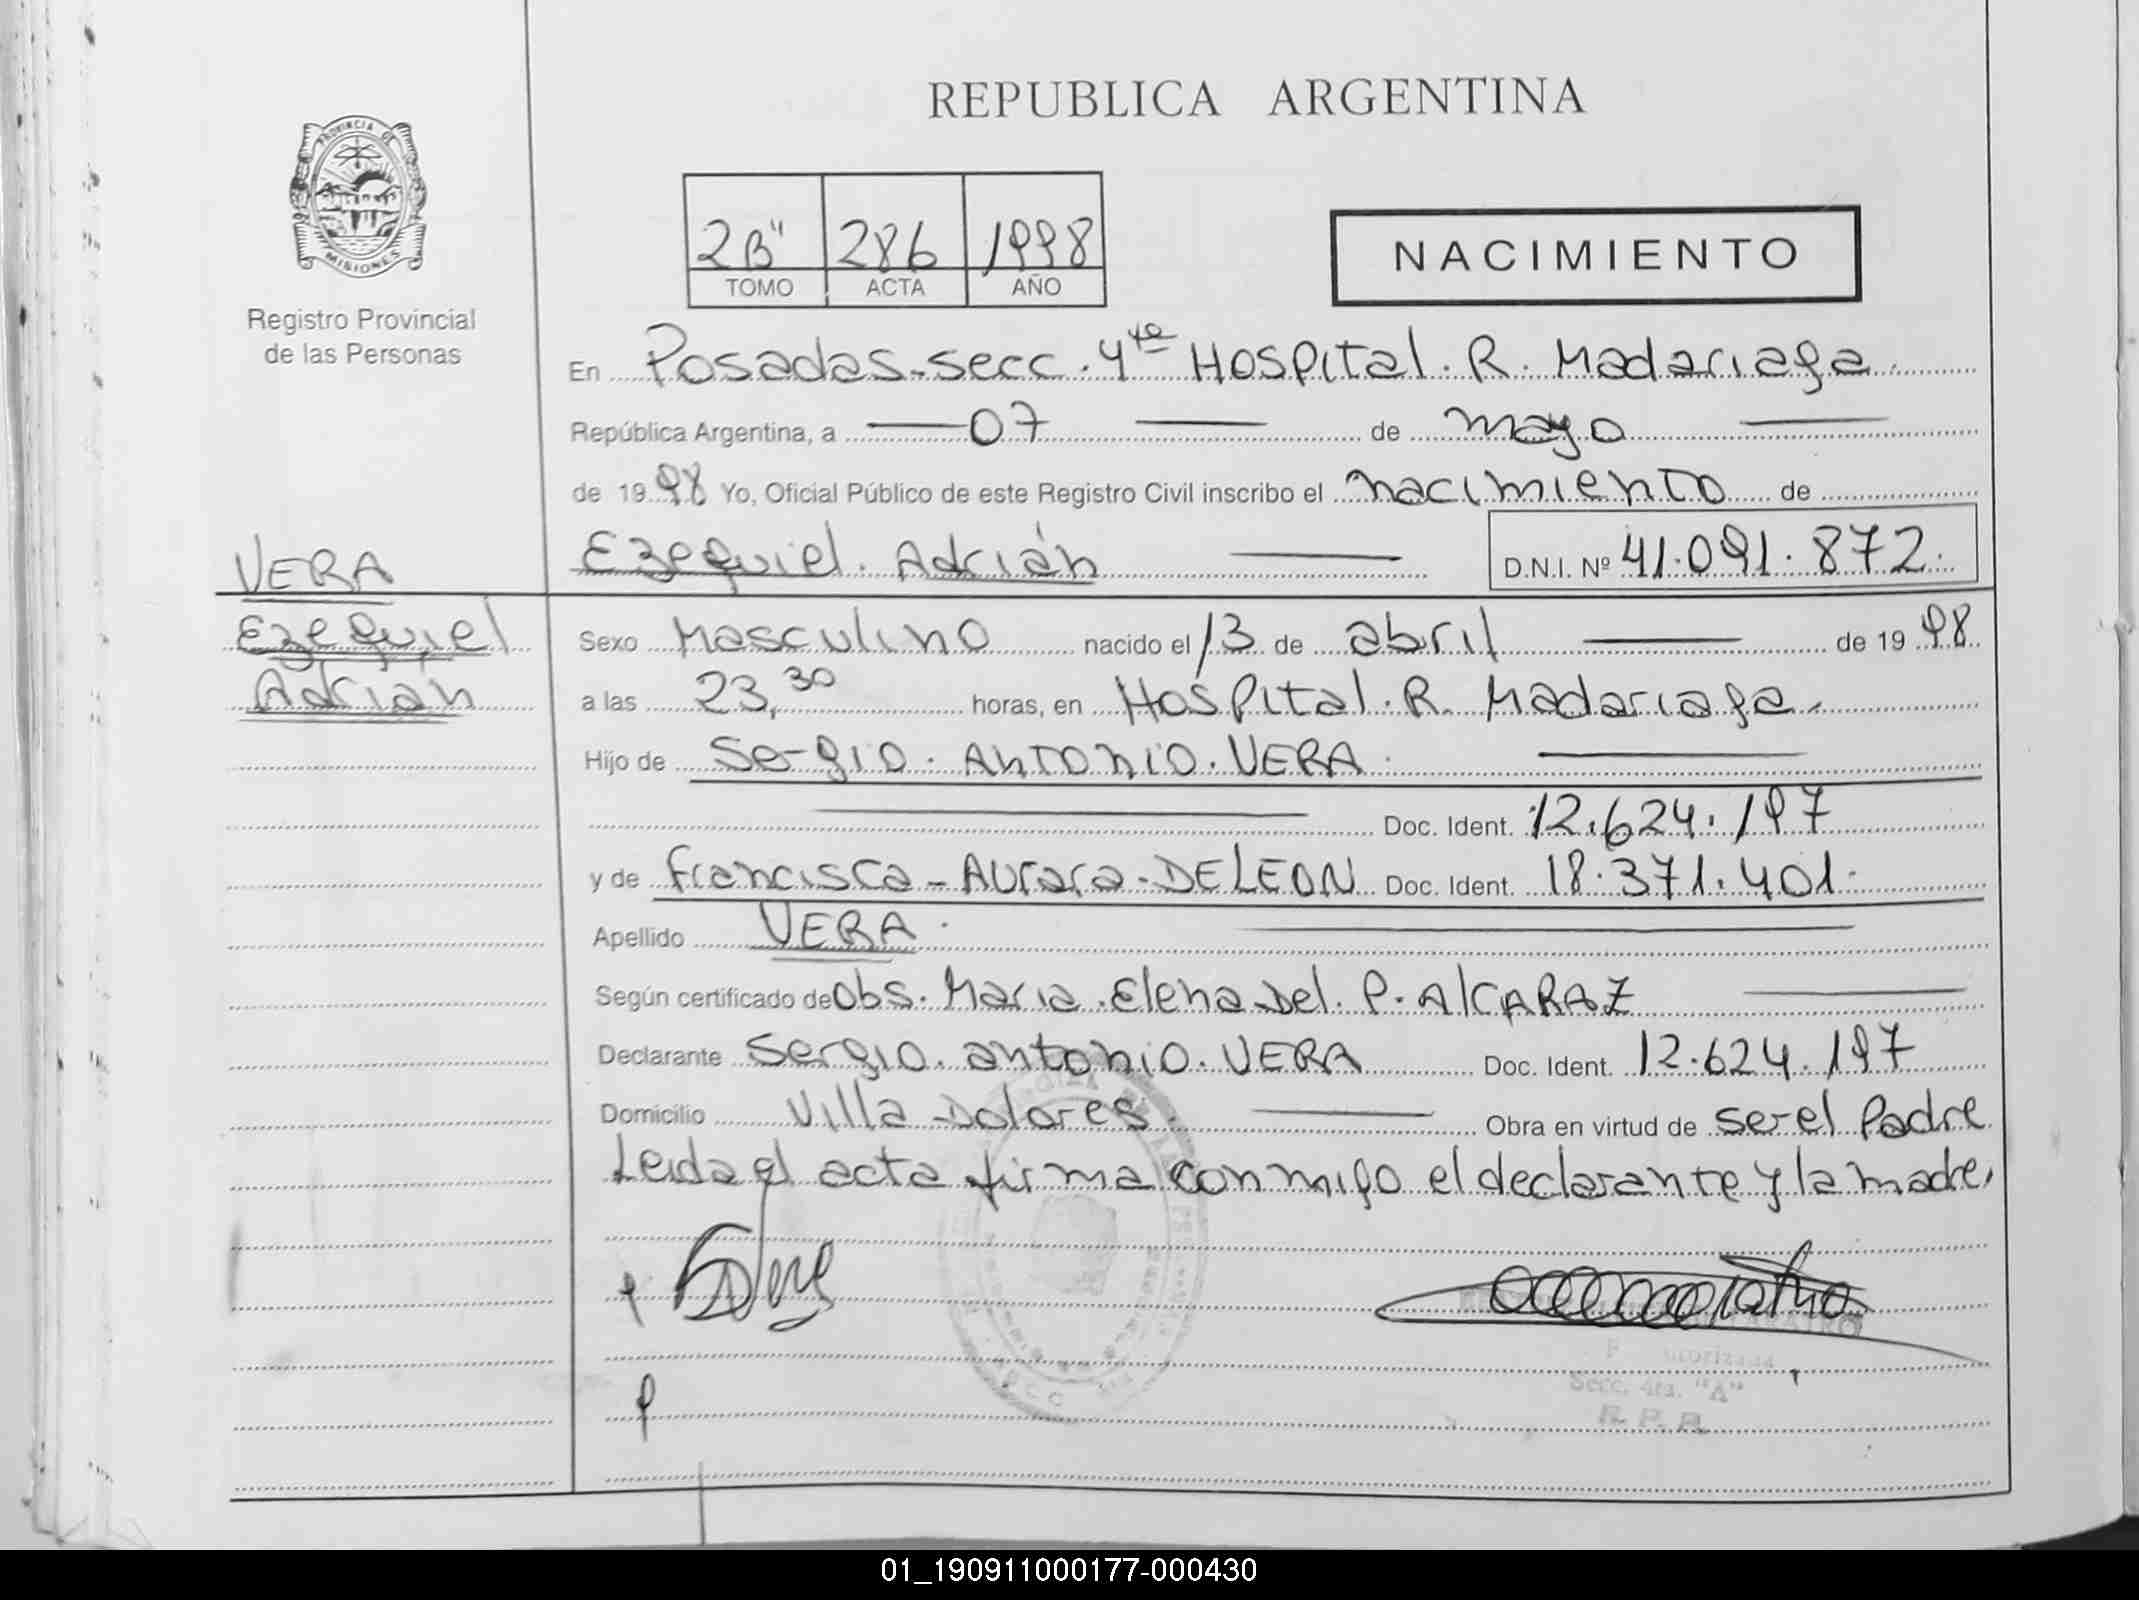 REPUBLICA ARGENTINA
PROVINCIA DE
MISIONES
Registro Provincial
de las Personas
2B" 286 1998
TOMO ACTA AÑO
NACIMIENTO
En Posadas-secc. 4ta Hospital. R. Madariaga.
República Argentina, a — 07 — de mayo —
de 1998 Yo, Oficial Público de este Registro Civil inscribo el nacimiento de
Ezequiel. Adrián — D.N.I. Nº 41.091.872.
VERA
Ezequiel
Adrián
Sexo Masculino nacido el 13 de abril — de 1998
a las 23,30 horas, en Hospital. R. Madariaga.
Hijo de Sergio. Antonio. VERA. —
— Doc. Ident. 12.624.197
y de Francisca-Aurora-DELEON Doc. Ident. 18.371.401.
Apellido VERA. —
Según certificado de Obs. Maria. Elena Del. P. AlCARAZ —
Declarante Sergio. antonio. VERA Doc. Ident. 12.624.197
Domicilio Villa Dolores. — Obra en virtud de ser el Padre
Leida el acta firma conmigo el declarante y la madre,
Secc. 4ta. "A"
R. P. P.
01_190911000177-000430